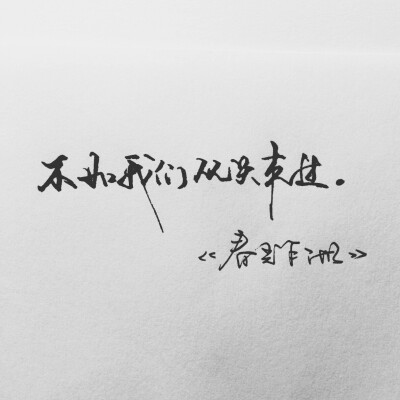 不如我们从头来过。
《春光乍泄》